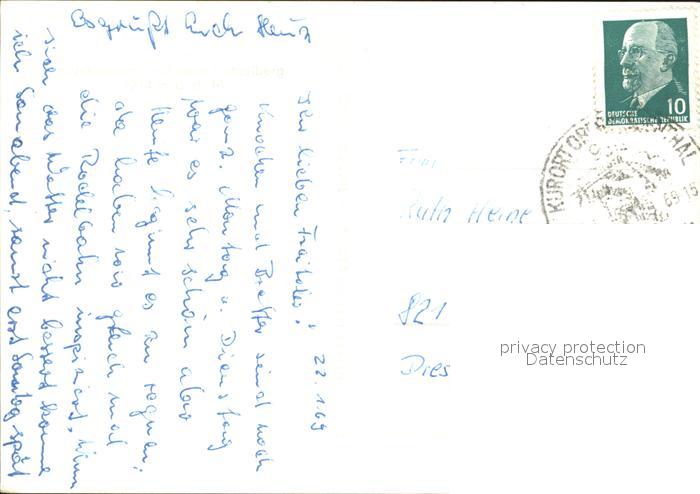 22.1.69
Ihr lieben
Knochen und Bretter sind noch
ganz. Montag u. Dienstag
war es sehr schön aber
heute beginnt es zu regnen;
da haben wir gleich mal
die Rodelbahn inspiziert, wenn
sich das Wetter nicht bessert komme
ich Sonnabend, sonst erst Sonntag spät
Es grüßt Euch
DEUTSCHE
DEMOKRATISCHE REPUBLIK
10
KURORT
69
Frau
Ruth Heine
821
Dres
privacy protection
Datenschutz